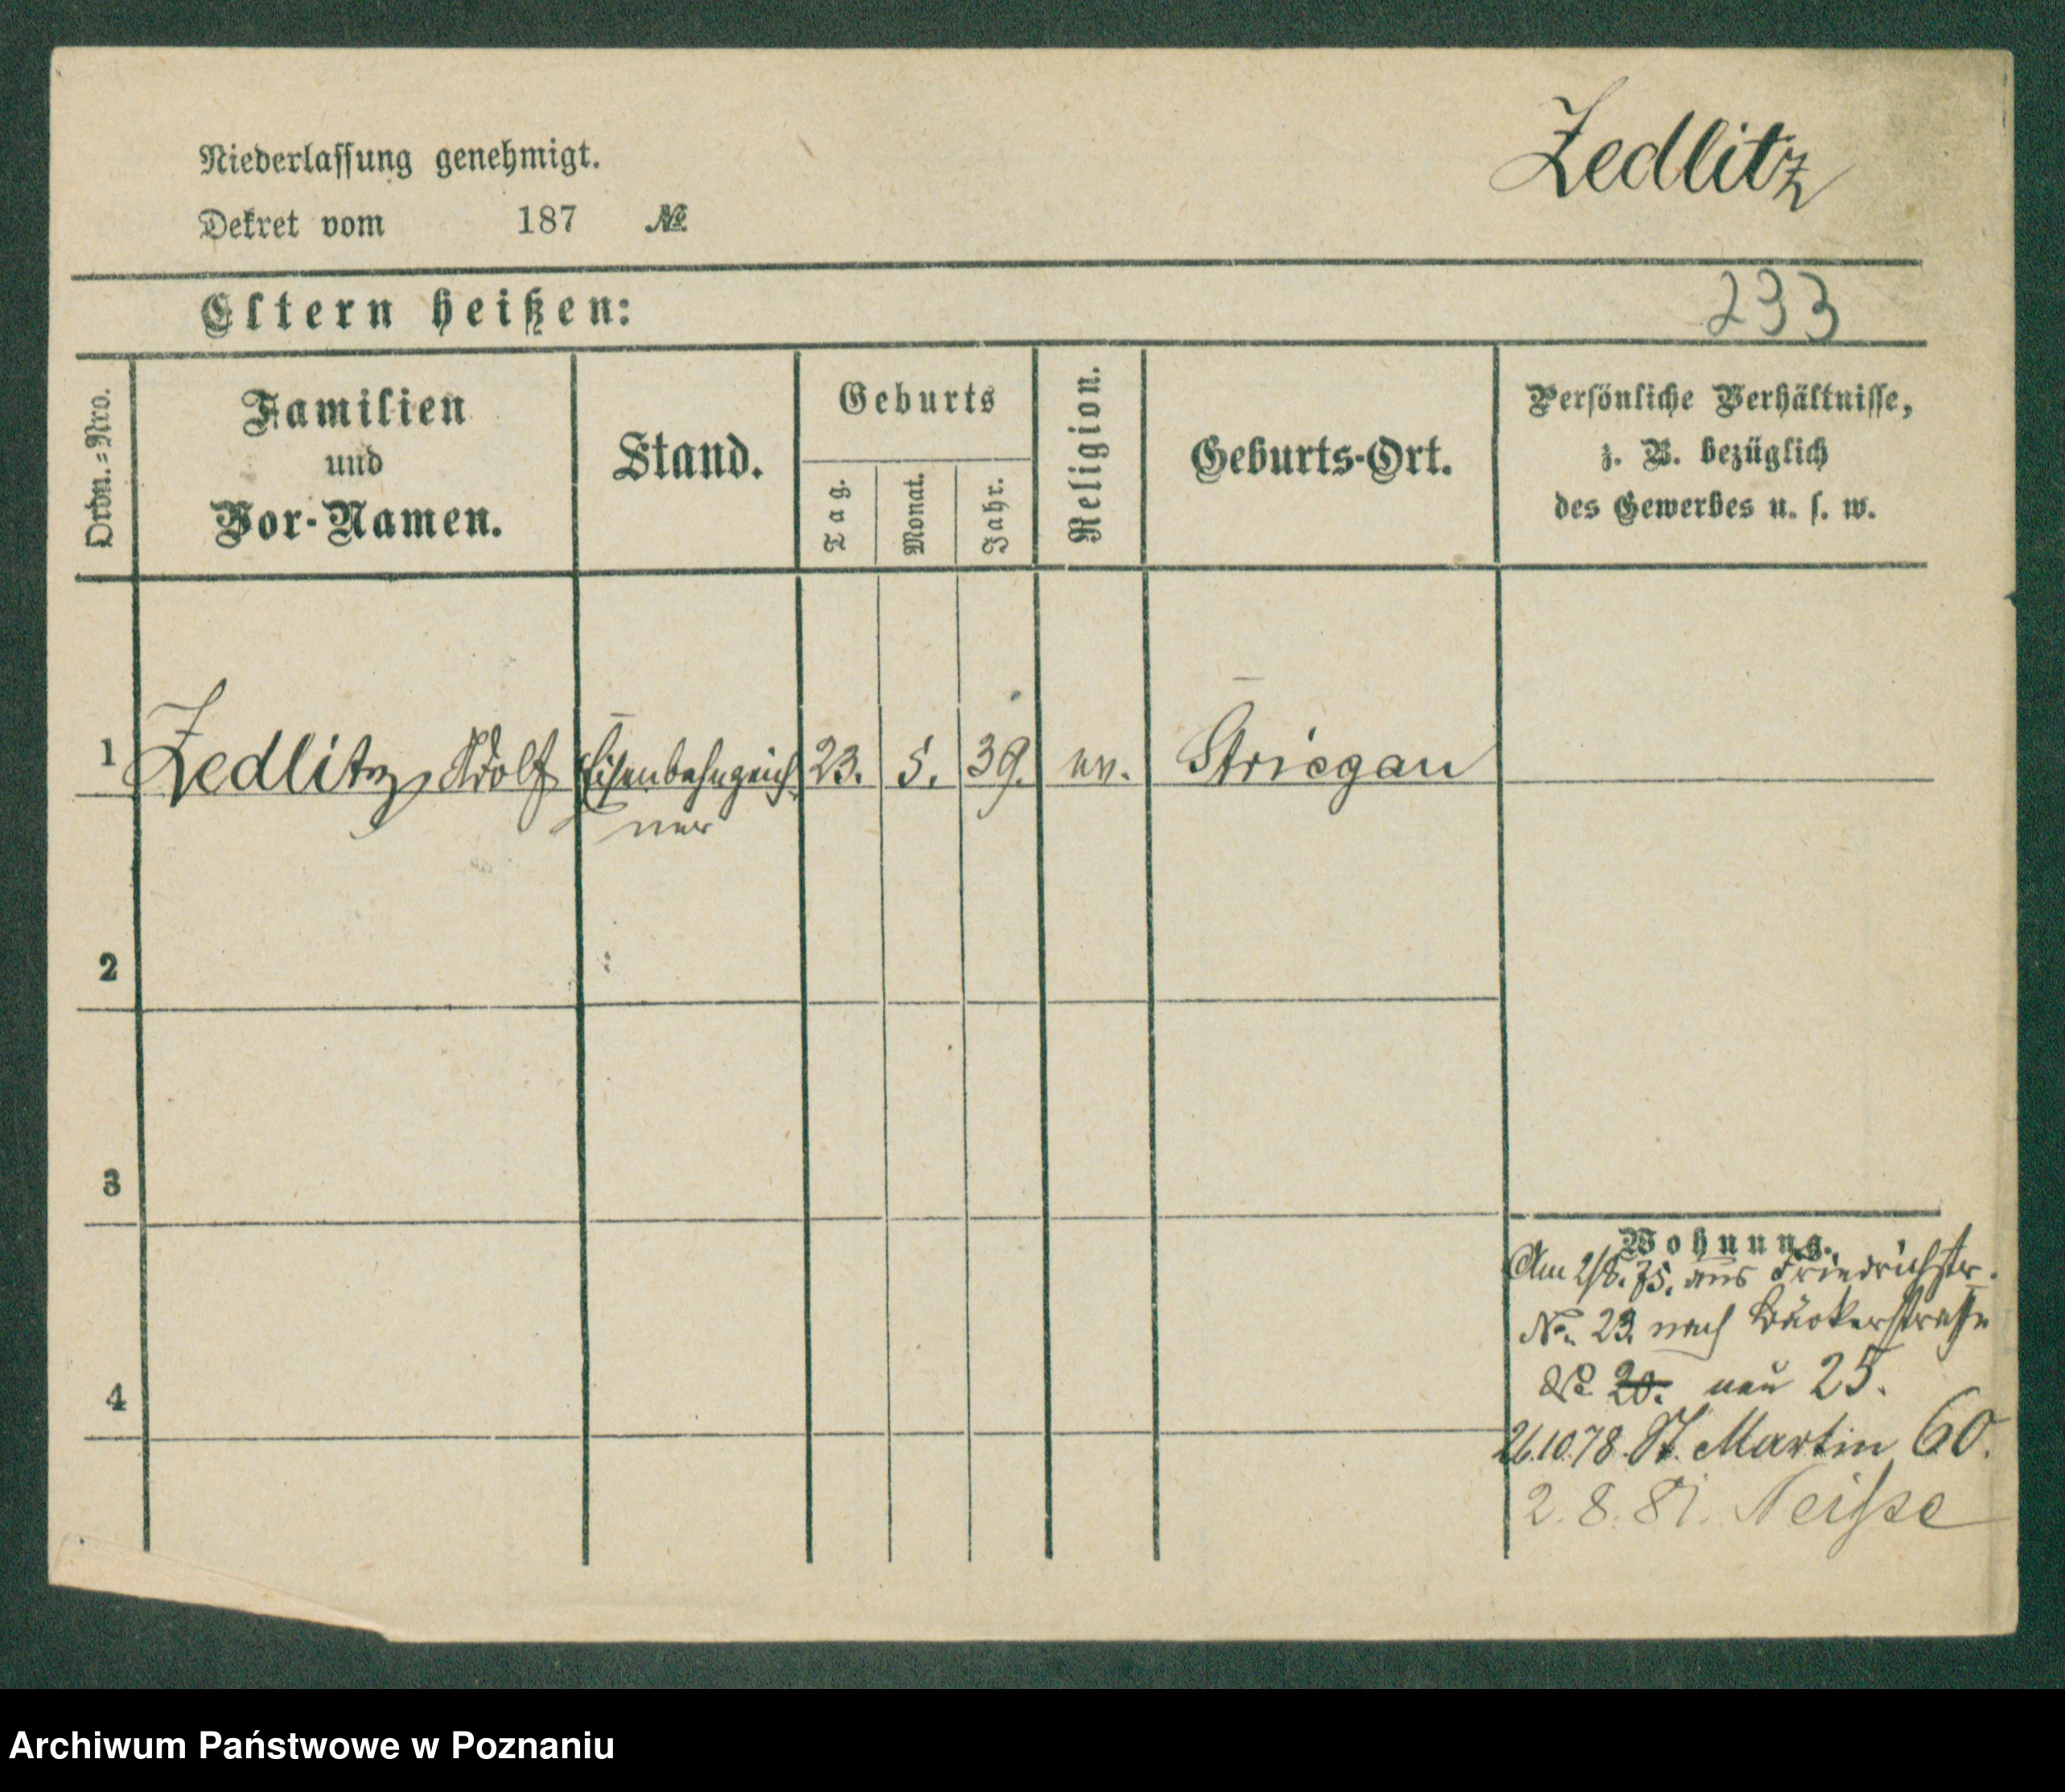 Zedlitz
Niederlassung genehmigt.
Dekret vom 187 №
233
Eltern heißen:
Ordn.=Nro.
Familien
und
Vor-Namen.
Stand.
Geburts
Tag.
Monat.
Jahr.
Religion.
Geburts-Ort.
Persönliche Verhältnisse,
z. B. bezüglich
des Gewerbes u. s. w.
1 Zedlitz, Adolf Eisenbahnzeich 23. 5. 39. ev. Striegau
ner
2
3
4
Wohnung.
Am 2/8. 75. aus Friedrichstr.
No. 23. nach Bäckerstraße
No. 20. neu 25.
26.10.78. St. Martin 60.
2. 8. 81. Neisse
Archiwum Państwowe w Poznaniu